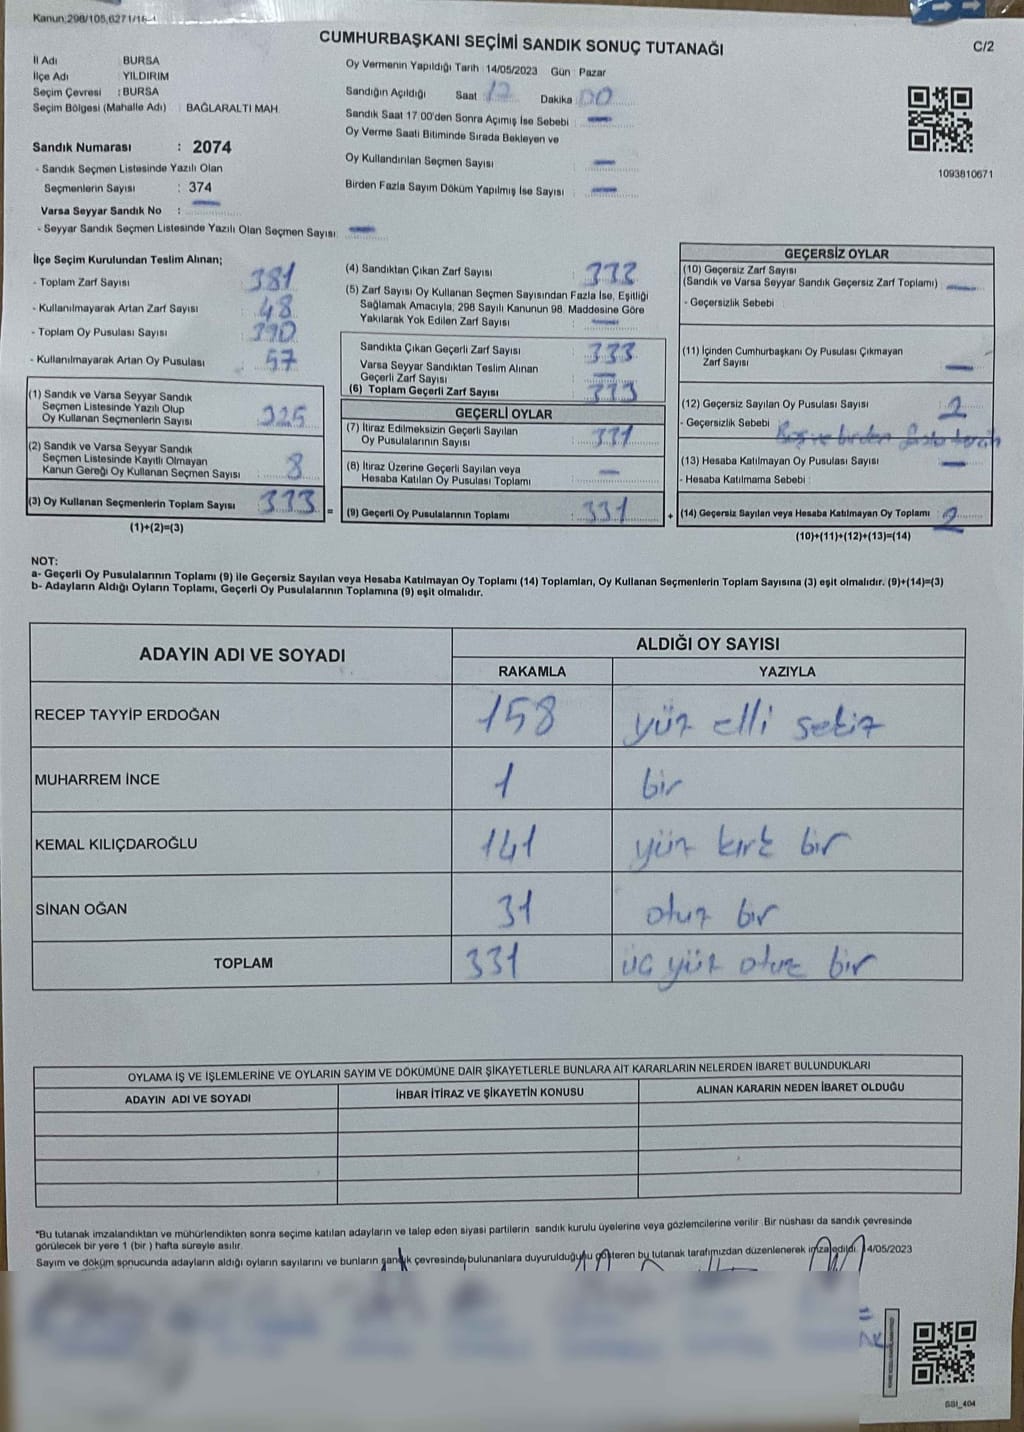 Kanun:298/105,6271/16-1
CUMHURBAŞKANI SEÇİMİ SANDIK SONUÇ TUTANAĞI
C/2
İl Adı : BURSA
İlçe Adı : YILDIRIM
Seçim Çevresi : BURSA
Seçim Bölgesi (Mahalle Adı) : BAĞLARALTI MAH.
Sandık Numarası : 2074
- Sandık Seçmen Listesinde Yazılı Olan
Seçmenlerin Sayısı : 374
Varsa Seyyar Sandık No : —
- Seyyar Sandık Seçmen Listesinde Yazılı Olan Seçmen Sayısı : —
Oy Vermenin Yapıldığı Tarih : 14/05/2023 Gün : Pazar
Sandığın Açıldığı Saat 17 Dakika 00
Sandık Saat 17 00'den Sonra Açımış İse Sebebi : —
Oy Verme Saati Bitiminde Sırada Bekleyen ve
Oy Kullandırılan Seçmen Sayısı : —
Birden Fazla Sayım Döküm Yapılmış İse Sayısı : —
1093810671
İlçe Seçim Kurulundan Teslim Alınan;
- Toplam Zarf Sayısı : 381
- Kullanılmayarak Artan Zarf Sayısı : 48
- Toplam Oy Pusulası Sayısı : 390
- Kullanılmayarak Artan Oy Pusulası : 57
(1) Sandık ve Varsa Seyyar Sandık
Seçmen Listesinde Yazılı Olup
Oy Kullanan Seçmenlerin Sayısı : 325
(2) Sandık ve Varsa Seyyar Sandık
Seçmen Listesinde Kayıtlı Olmayan
Kanun Gereği Oy Kullanan Seçmen Sayısı : 8
(3) Oy Kullanan Seçmenlerin Toplam Sayısı : 333 =
(1)+(2)=(3)
(4) Sandıktan Çıkan Zarf Sayısı : 333
(5) Zarf Sayısı Oy Kullanan Seçmen Sayısından Fazla İse, Eşitliği
Sağlamak Amacıyla, 298 Sayılı Kanunun 98. Maddesine Göre
Yakılarak Yok Edilen Zarf Sayısı : —
Sandıkta Çıkan Geçerli Zarf Sayısı : 333
Varsa Seyyar Sandıktan Teslim Alınan
Geçerli Zarf Sayısı : —
(6) Toplam Geçerli Zarf Sayısı : 333
GEÇERLİ OYLAR
(7) İtiraz Edilmeksizin Geçerli Sayılan
Oy Pusulalarının Sayısı : 331
(8) İtiraz Üzerine Geçerli Sayılan veya
Hesaba Katılan Oy Pusulası Toplamı : —
(9) Geçerli Oy Pusulalarının Toplamı : 331 +
GEÇERSİZ OYLAR
(10) Geçersiz Zarf Sayısı
(Sandık ve Varsa Seyyar Sandık Geçersiz Zarf Toplamı) : —
- Geçersizlik Sebebi :
(11) İçinden Cumhurbaşkanı Oy Pusulası Çıkmayan
Zarf Sayısı : —
(12) Geçersiz Sayılan Oy Pusulası Sayısı : 2
- Geçersizlik Sebebi : Boş ve birden fazla tercih
(13) Hesaba Katılmayan Oy Pusulası Sayısı : —
- Hesaba Katılmama Sebebi :
(14) Geçersiz Sayılan veya Hesaba Katılmayan Oy Toplamı : 2
(10)+(11)+(12)+(13)=(14)
NOT:
a- Geçerli Oy Pusulalarının Toplamı (9) ile Geçersiz Sayılan veya Hesaba Katılmayan Oy Toplamı (14) Toplamları, Oy Kullanan Seçmenlerin Toplam Sayısına (3) eşit olmalıdır. (9)+(14)=(3)
b- Adayların Aldığı Oyların Toplamı, Geçerli Oy Pusulalarının Toplamına (9) eşit olmalıdır.
ADAYIN ADI VE SOYADI
ALDIĞI OY SAYISI
RAKAMLA YAZIYLA
RECEP TAYYİP ERDOĞAN 158 yüz elli sekiz
MUHARREM İNCE 1 bir
KEMAL KILIÇDAROĞLU 141 yüz kırk bir
SİNAN OĞAN 31 otuz bir
TOPLAM 331 üç yüz otuz bir
OYLAMA İŞ VE İŞLEMLERİNE VE OYLARIN SAYIM VE DÖKÜMÜNE DAİR ŞİKAYETLERLE BUNLARA AİT KARARLARIN NELERDEN İBARET BULUNDUKLARI
ADAYIN ADI VE SOYADI İHBAR İTİRAZ VE ŞİKAYETİN KONUSU ALINAN KARARIN NEDEN İBARET OLDUĞU
"Bu tutanak imzalandıktan ve mühürlendikten sonra seçime katılan adayların ve talep eden siyasi partilerin sandık kurulu üyelerine veya gözlemcilerine verilir. Bir nüshası da sandık çevresinde
görülecek bir yere 1 (bir) hafta süreyle asılır.
Sayım ve döküm sonucunda adayların aldığı oyların sayılarını ve bunların sandık çevresinde bulunanlara duyurulduğunu gösteren bu tutanak tarafımızdan düzenlenerek imza edildi. 14/05/2023